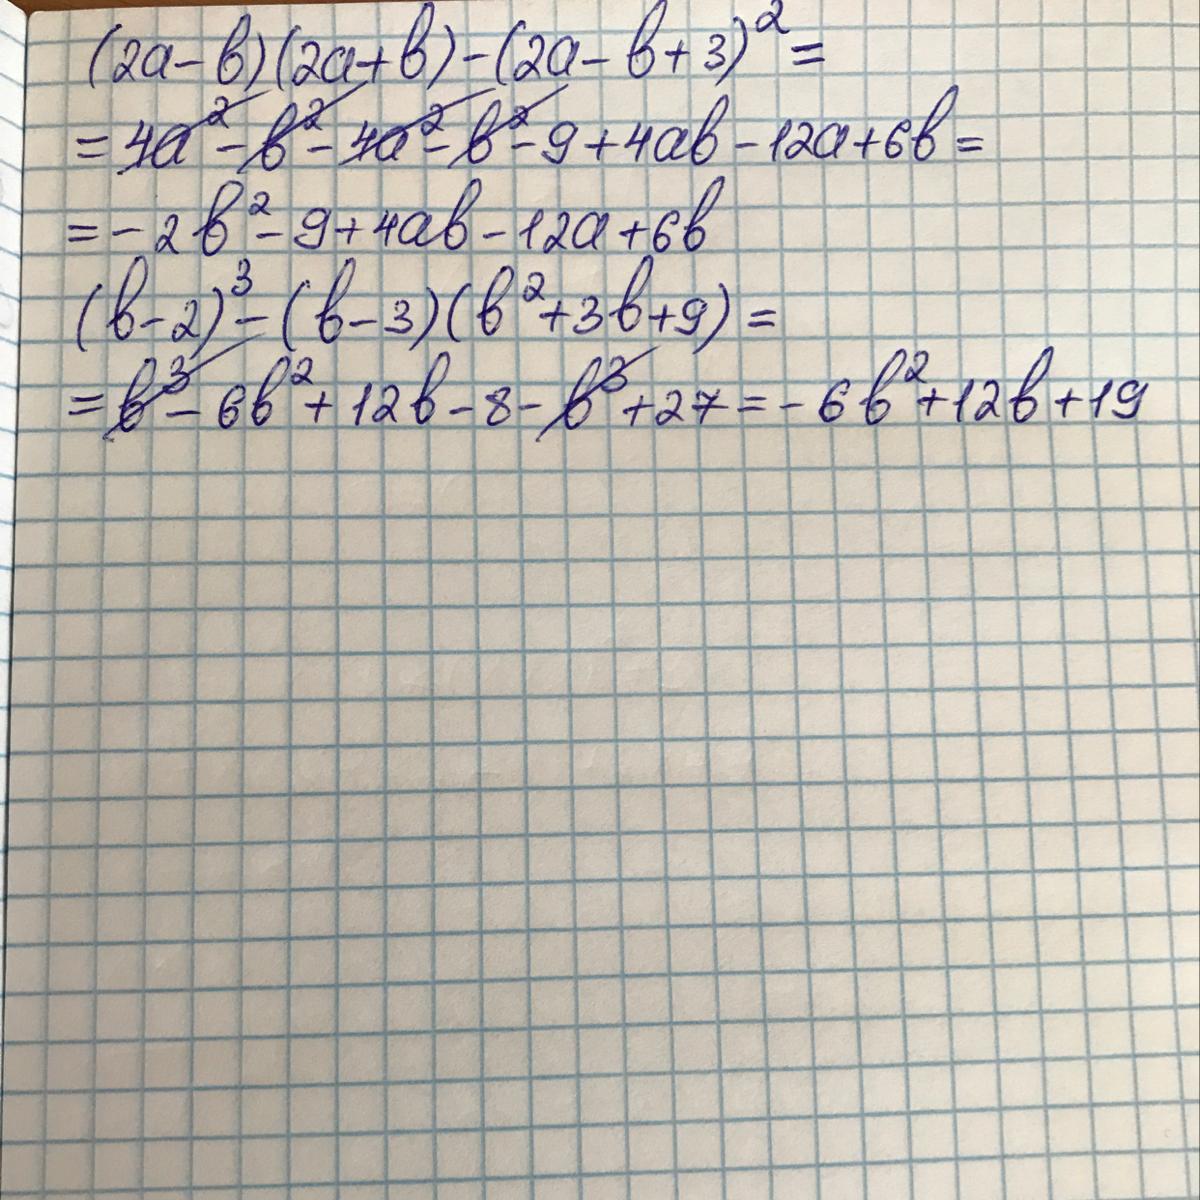 (2a-b)(2a+b)-(2a-b+3)²=
=4a²-b²-4a²-b²-9+4ab-12a+6b=
=-2b²-9+4ab-12a+6b
(b-2)³-(b-3)(b²+3b+9)=
=b³-6b²+12b-8-b³+27=-6b²+12b+19